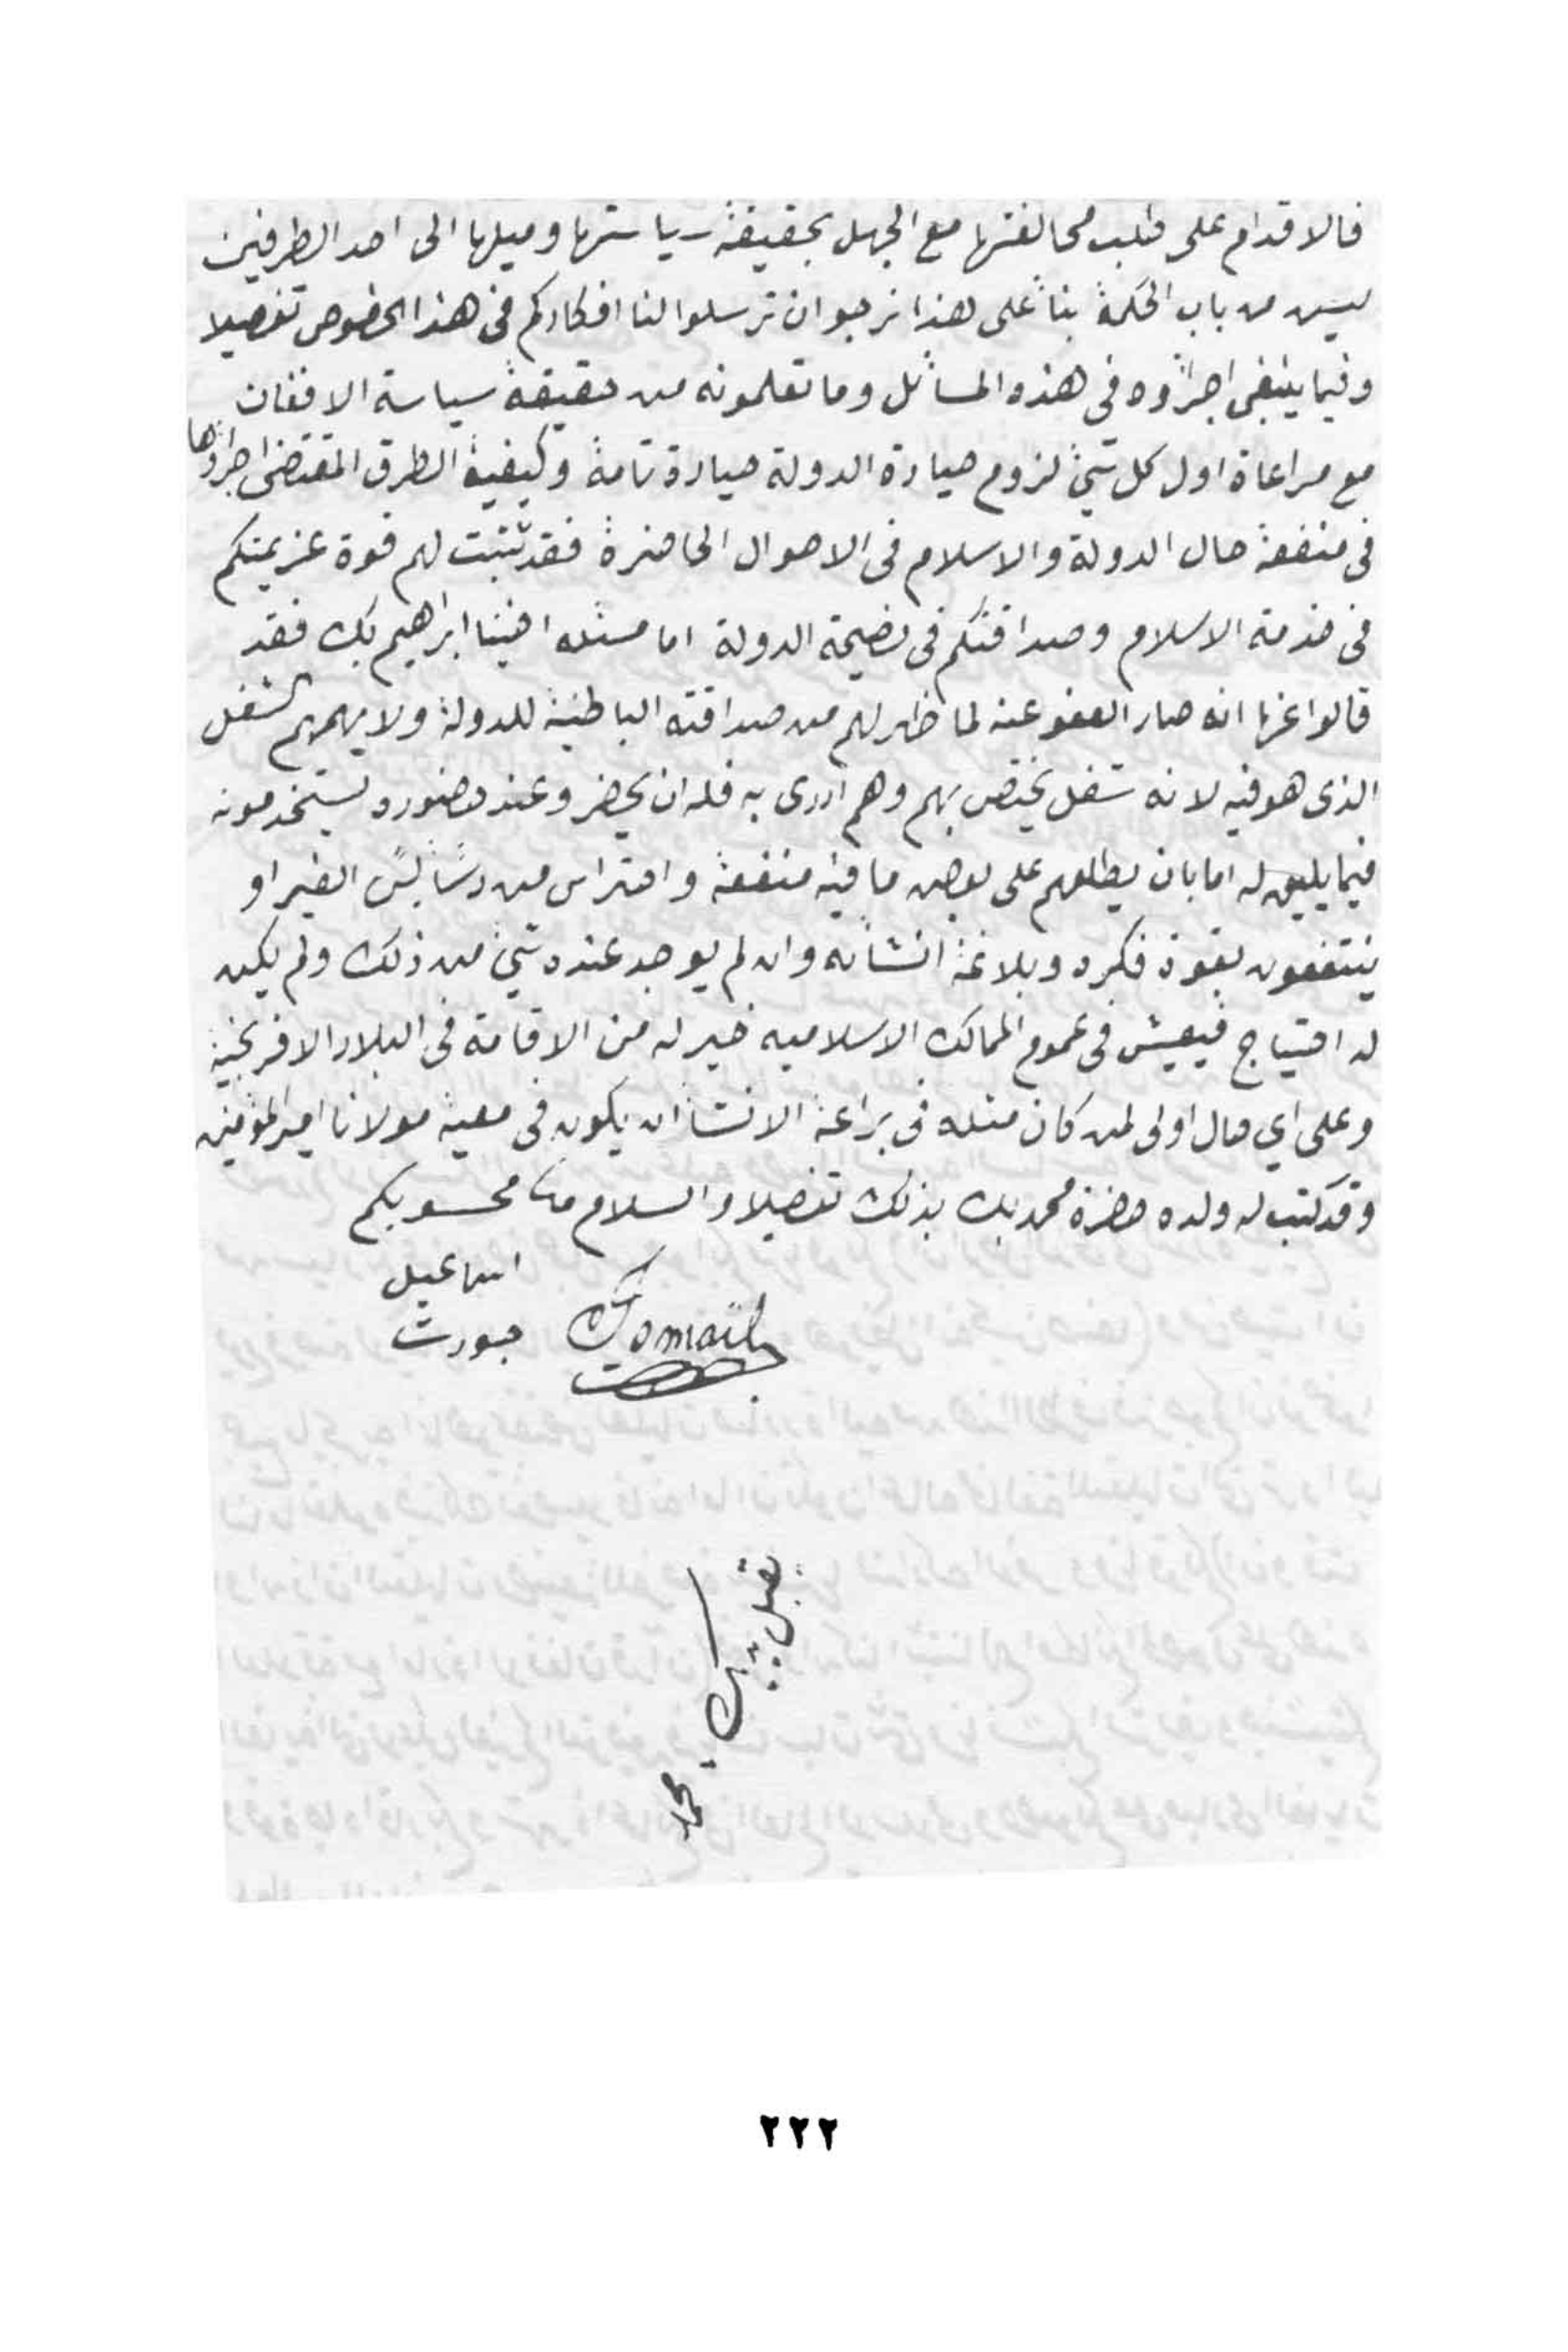 فالاقدام على طلب محالفتها مع الجهل بحقيقة سياستها وميلها الى احد الطرفين
ليس من باب الحكمة بناً على هذا نرجو ان ترسلوا لنا افكاركم فى هذا الخصوص تفصيلا
وفيما ينبغى اجراؤه فى هذه المسائل وما تعلمونه من حقيقة سياسة الافغان
مع مراعاة اول كل شئ لزوم حيادة الدولة حيادة تامة وكيفية الطرق المقتضى اجراؤها
فى منفعة حال الدولة والاسلام فى الاحوال الحاضرة فقد ثبتت لهم قوة عزيمتكم
فى خدمة الاسلام وصداقتكم فى نصيحة الدولة اما مسئله اخينا ابراهيم بك فقد
قالوا عنها انه صار العفو عنه لما ظهر لهم من صداقته الباطنية للدولة ولا يهمهم الشغل
الذى هو فيه لانه شغل يختص بهم وهم ادرى به فله ان يحضر وعند حضوره يستخدمونه
فيما يليق له اما بان يطلعهم على بعض ما فيه منفعة واحتراس من دسائس الغير او
ينتفعون بقوة فكره وبلاغة انشائه وان لم يوجد عنده شئ من ذلك ولم يكن
له احتياج فيعيش فى عموم الممالك الاسلاميه خير له من الاقامة فى البلاد الافرنجية
وعلى اي حال اولى لمن كان مثله فى براعة الانشاً ان يكون فى معية مولانا امير المؤمنين
وقد كتب له ولده حضرة محمد بك بذلك تفصيلا والسلام محسوبكم
اسماعيل
جودت
Ismaïl
محمد
٢٢٢